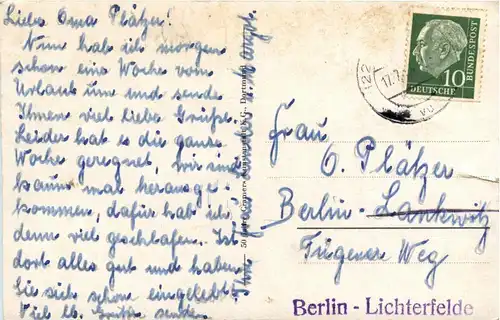 Liebes Oma Plätzer!
Nun hab ich morgen
schon eine Woche vom
Urlaub um und sende
Ihnen viel liebe Grüße.
Leider hat es die ganze
Woche geregnet, wir sind
kaum mal herausge-
kommen, dafür hab ich
denn viel geschlafen. Ist
dort alles gut und haben
Sie sich schon eingelebt?
Viel lb. Grüße sendet
Ihre
u. Margr.
Dortmund
122
17.7.
10
DEUTSCHE
BUNDESPOST
Frau
O. Plätzer
Berlin-Lankwitz
Tügener Weg
Berlin - Lichterfelde